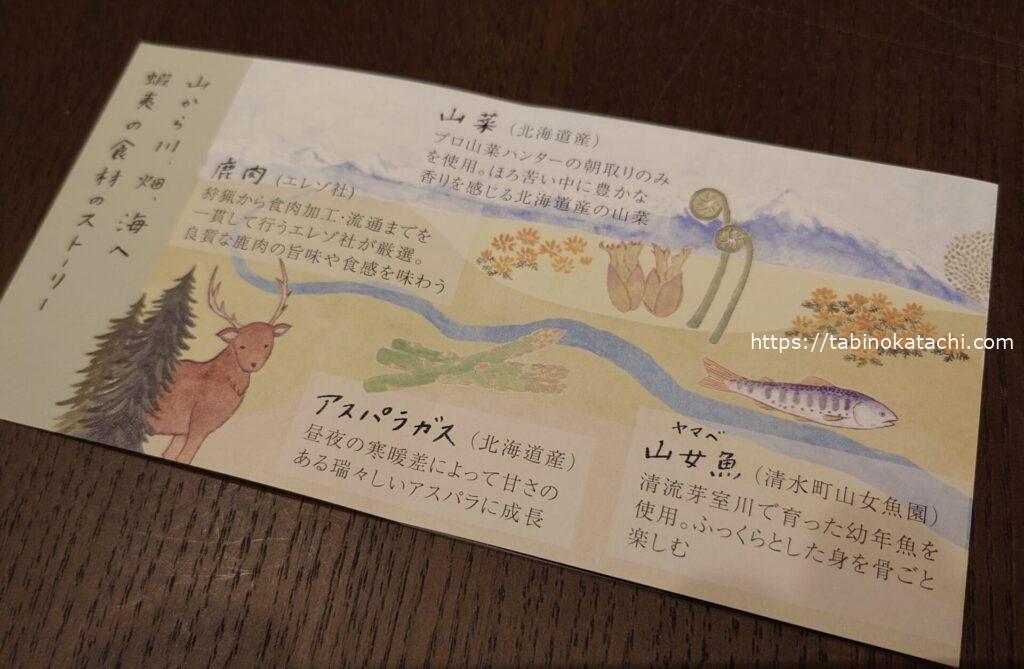 山から川、畑、海へ
蝦夷の食材のストーリー
山菜（北海道産）
プロ山菜ハンターの朝取りのみ
を使用。ほろ苦い中に豊かな
香りを感じる北海道産の山菜
鹿肉（エレゾ社）
狩猟から食肉加工・流通までを
一貫して行うエレゾ社が厳選。
良質な鹿肉の旨味や食感を味わう
https://tabinokatachi.com
アスパラガス（北海道産）
昼夜の寒暖差によって甘さの
ある瑞々しいアスパラに成長
ヤマベ
山女魚（清水町山女魚園）
清流芽室川で育った幼年魚を
使用。ふっくらとした身を骨ごと
楽しむ